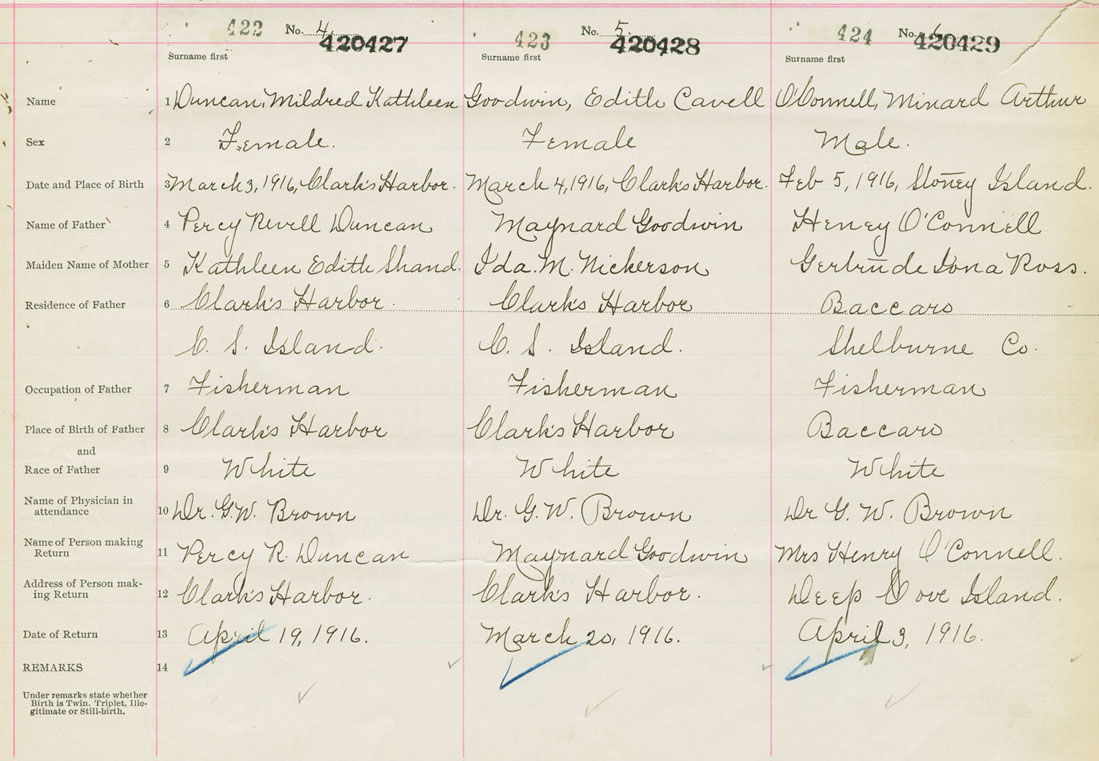 422 No. 4 420427 423 No. 5 420428 424 No. 6 420429
Surname first Surname first Surname first
Name 1 Duncan, Mildred Kathleen Goodwin, Edith Cavell O'Connell, Minard Arthur
Sex 2 Female. Female Male.
Date and Place of Birth 3 March 3, 1916, Clark's Harbor. March 4, 1916, Clark's Harbor. Feb 5, 1916, Stoney Island.
Name of Father 4 Percy Duncan Maynard Goodwin Henry O'Connell
Maiden Name of Mother 5 Kathleen Edith Shand. Ida. M. Nickerson Gertrude Iona Ross.
Residence of Father 6 Clark's Harbor. Clark's Harbor Baccaro
C. S. Island. C. S. Island. Shelburne Co.
Occupation of Father 7 Fisherman Fisherman Fisherman
Place of Birth of Father 8 Clark's Harbor Clark's Harbor Baccaro
and
Race of Father 9 White White White
Name of Physician in
attendance 10 Dr. G.W. Brown Dr. G. W. Brown Dr G. W. Brown
Name of Person making
Return 11 Percy R. Duncan Maynard Goodwin Mrs Henry O'Connell.
Address of Person mak-
ing Return 12 Clark's Harbor. Clark's Harbor. Deep Cove Island.
Date of Return 13 April 19, 1916. March 20, 1916. April 3, 1916.
REMARKS 14
Under remarks state whether
Birth is Twin. Triplet, Ille-
gitimate or Still-birth.